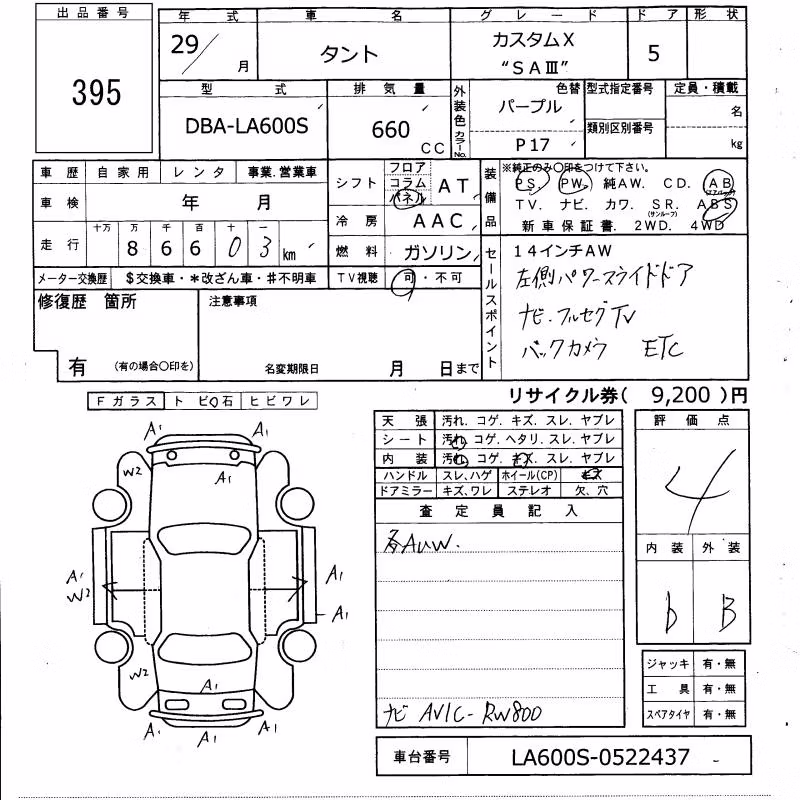 出品番号
395
年式 車名 グレード ドア 形状
29/ 月 タント カスタムX “SAⅢ” 5
型式 排気量 外装色 色替 型式指定番号 定員・積載
DBA-LA600S 660 CC パープル 名
カラーNo. P17 類別区別番号 kg
車歴 自家用 レンタ 事業.営業車
車検 年 月
走行 十万 万 千 百 十 一
8 6 6 0 3 km
メーター交換歴 $交換車・*改ざん車・#不明車
シフト フロア コラム パネル AT
冷房 AAC
燃料 ガソリン
TV視聴 可・不可
装備品 ※純正のみ〇印をつけて下さい。
PS. PW. 純AW. CD. AB
TV. ナビ. カワ. SR. ABS
(サンルーフ)
新車保証書. 2WD. 4WD
セールスポイント
14インチAW
左側パワースライドドア
ナビ.フルセグTV
バックカメラ ETC
修復歴 箇所 注意事項
有 (有の場合〇印を) 名変期限日 月 日まで
リサイクル券( 9,200 )円
Fガラス トビ石 ヒビワレ
A1 A1
W2 A1
A1 W2 A1
A1
W2 A1
A1 A1 A1
天張 汚れ.コゲ.キズ.スレ.ヤブレ
シート 汚れ.コゲ.ヘタリ.スレ.ヤブレ
内装 汚れ.コゲ.キズ.スレ.ヤブレ
ハンドル スレ､ハゲ ホイール(CP) キズ
ドアミラー キズ､ワレ ステレオ 欠､穴
査定員記入
各AUW.
ナビ AVIC-RW800
評価点
4
内装 外装
b B
ジャッキ 有・無
工具 有・無
スペアタイヤ 有・無
車台番号 LA600S-0522437